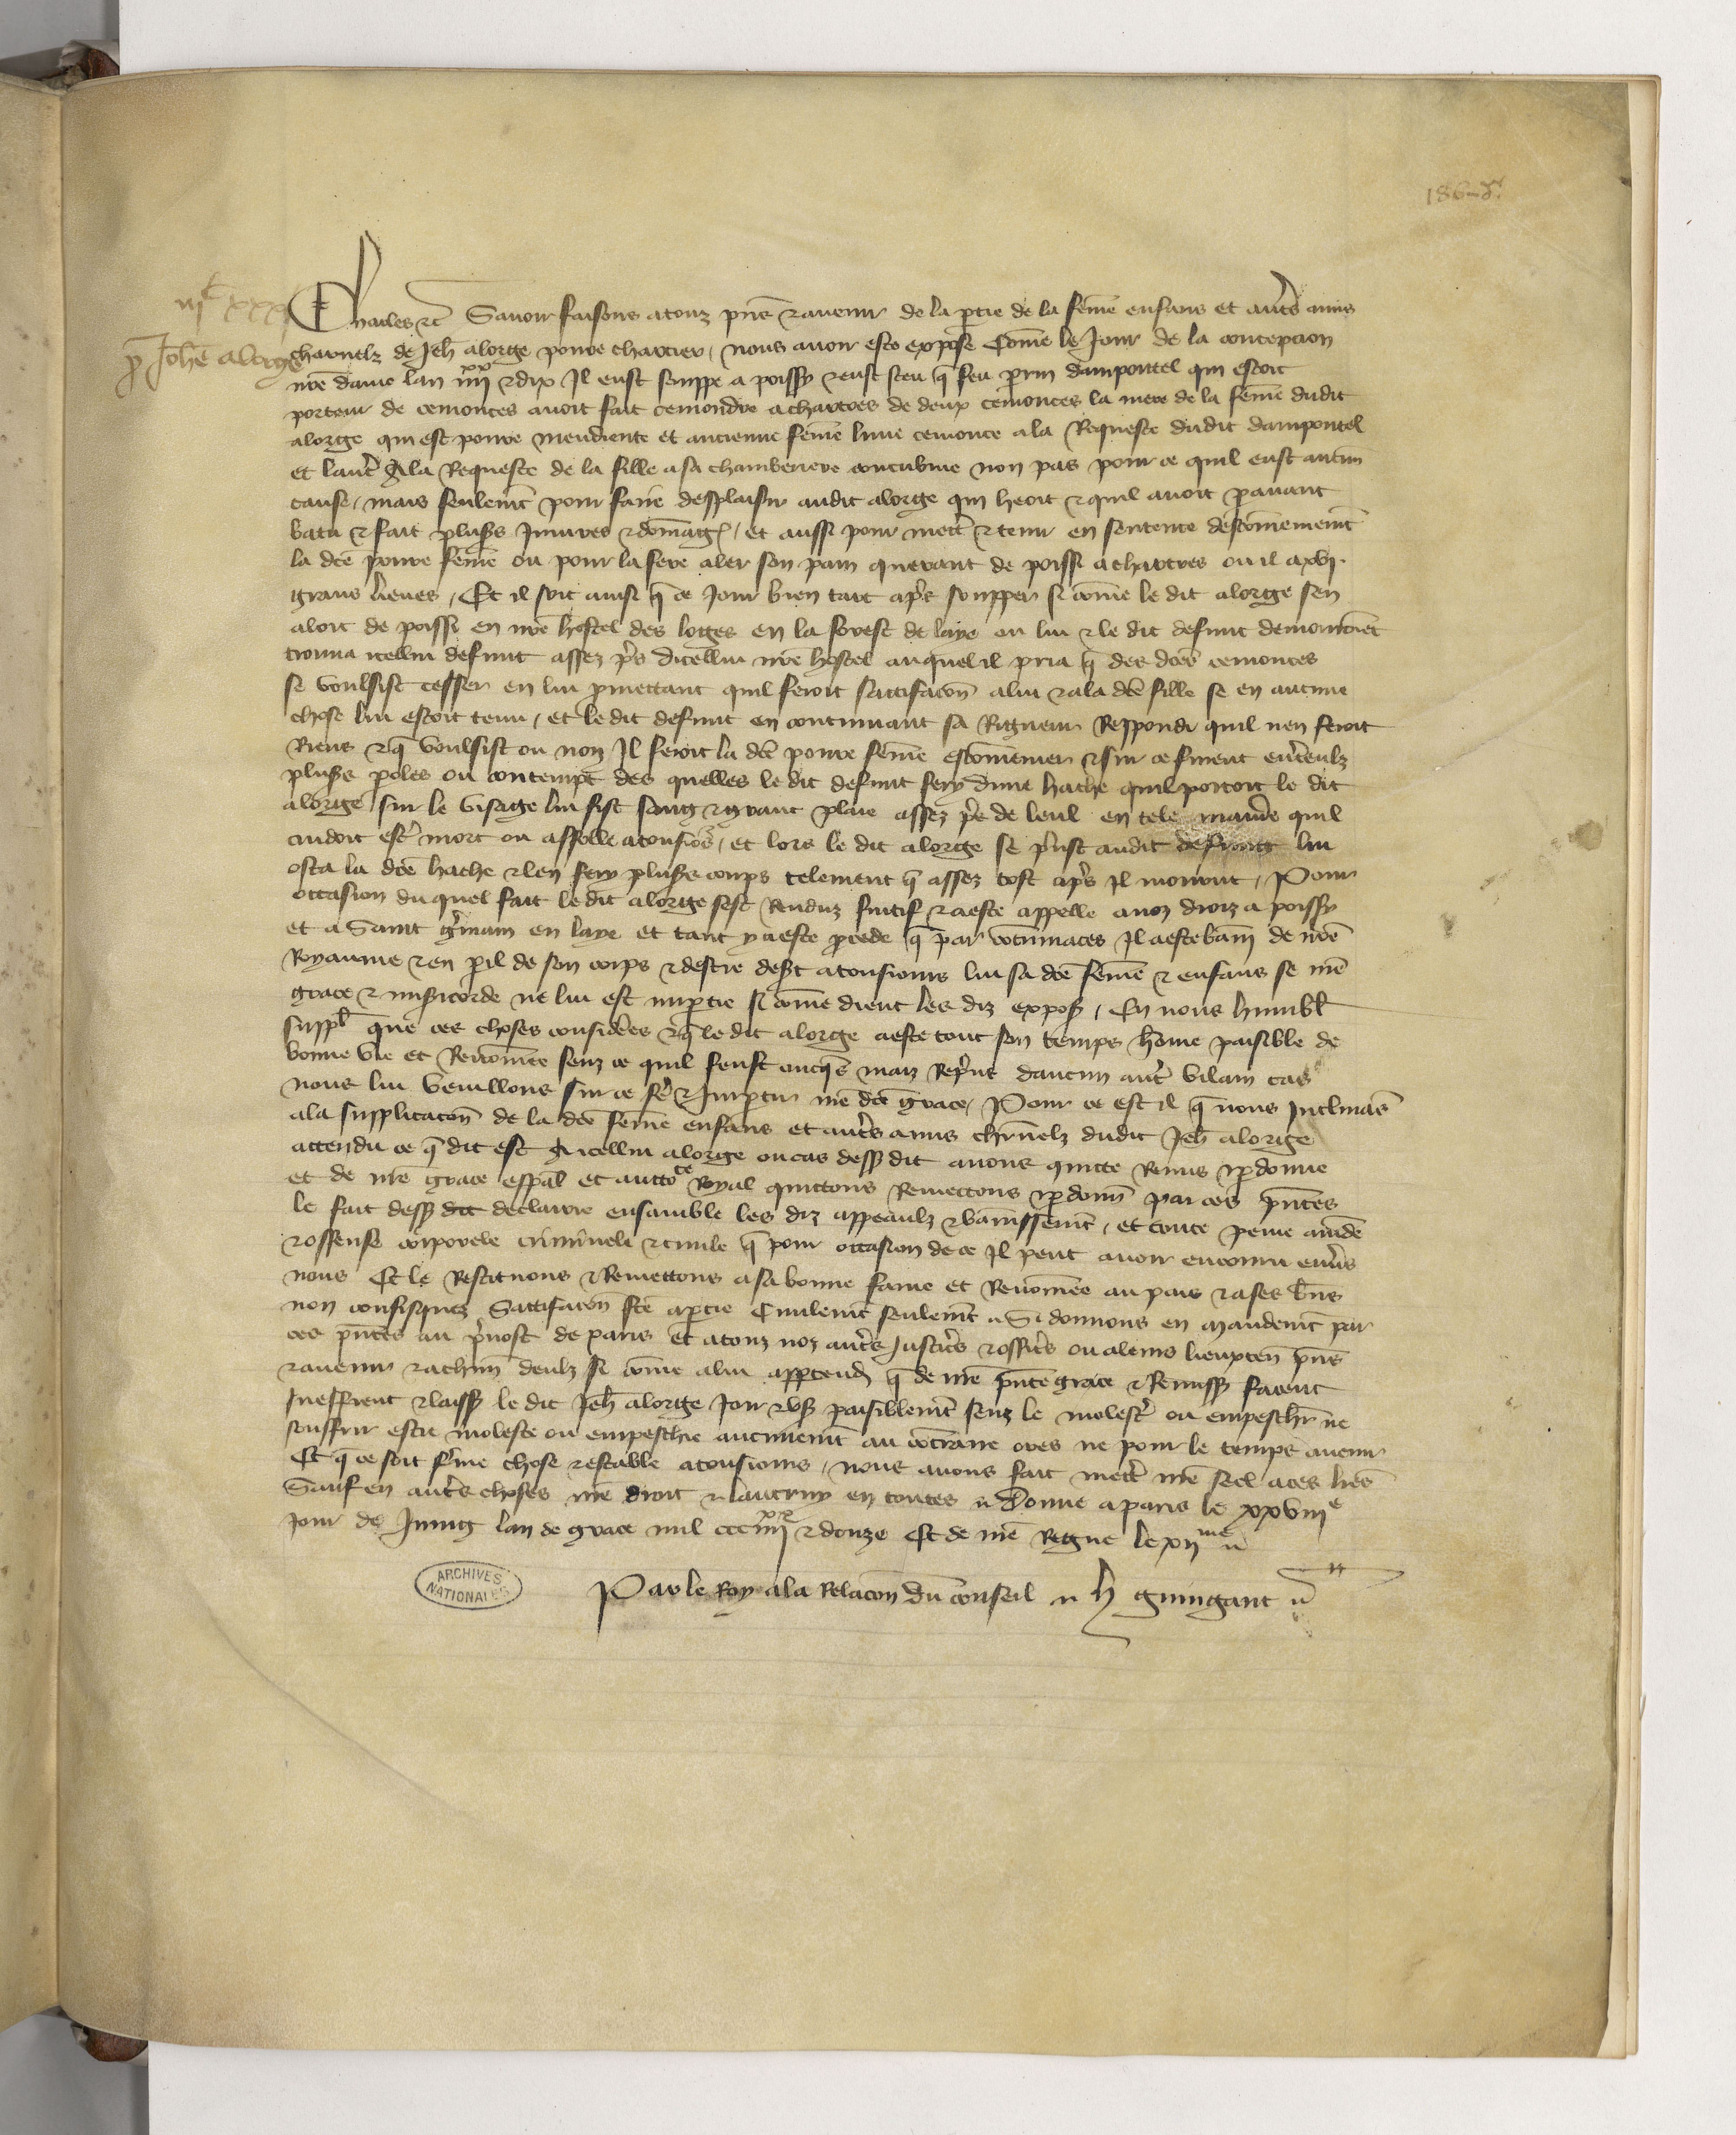 186
iijc xxx
p Johe alorge
Charles etc Savoir faisons a touz pns et avenir de la partie de la feme enfans et autres amis
charnelz de Jeh alorge povre chartier, nous avoir esté exposé come le jour de la concepcion
nre dame lan iiiixx et dix Il eust souppé a poissy et eust sceu q feu perrin dampontel qui estoit
porteur de cemonces avoit fait cemondre a chartres de deux cemonces la mere de la feme dudit
alorge qui est povre mendiente et ancienne feme lune cemonce a la Requeste dudit dampontel
et lautre A la Requeste de la fille a sa chamberiere concubine non pas pour ce quil eust aucun
cause, mais seulemt pour faire desplaisir audit alorge qui heoit et quil avoit paravant
batu et fait plus Injures et domag, et aussi pour mettre et tenir en sentence descomeniemt
la dce povre feme ou pour la fere aler son pain querant de poissi a chartres ou il a xvj.
grans lieues, Et il soit ainsi q ce jour bien tart apres soupper si come le dit alorge sen
aloit de poissi en nre hostel des loges en la forest de laye ou lui et le dit defunt demouroiet
trouva icellui defunt assez pres dicellui nre hostel auquel il pria q des dces cemonces
se voulsist cesser en lui promettant quil feroit sattisfacon a lui et a la dce fille se en aucune
chose lui estoit tenu, et le dit defunt en continuant sa Rigueur Respondi quil nen feroit
Riens et q voulsist ou non Il feroit la dce povre feme escomenier et sur ce furent entreulz
plus paroles ou contempt des quelles le dit defunt fery dune hache quil portoit le dit
alorge sur le visage lui fist sang et grant plaie assez pres de leul en tele maniere quil
cudoit estre mort ou affolle a tousjors, et lors le dit alorge se prist audit defunt lui
osta la dce hache et len fery plus coups telement q assez tost apres Il mourut, Pour
occasion du quel fait le dit alorge sest Renduz fuitif et a esté appellé a noz droiz a poissy
et a Saint germain en laye et tant y a esté procede q par contumaces Il a esté bani de nre
Royaume et en peril de son corps et destre desert a tousjours lui sa dce feme et enfans se nre
grace et misericorde ne lui est impartie si come dient les diz expos, En nous humbl
suppl que ces choses considerees et q le dit alorge a esté tout son temps home paisible de
bonne vie et Renomee senz ce quil feust onques mais Repris daucun autre vilain cas
nous lui veuillons sur ce fre et Impartir nre dce grace, Pour ce est il q nous Inclinas
a la supplicacon de la dce feme enfans et autres amis charnelz dudit Jeh alorge
attendu ce q dit est A icellui alorge ou cas dess dit avons quicté Remis et pardonne
et de nre grace espal et auctoce Royal quictons Remectons et pardonn par ces pntes
le fait dess dit declairie ensamble les diz appeaulz et banissemt, et toute peine amde
et offense corporele criminele et civile q pour occasion de ce Il peut avoir encouru envers
nous Et le Restituons et Remettons a sa bonne fame et Renomee au pais et a ses bns
non confisquez Sattisfacon fcte a partie Civilemt seulemt Si donnons en mandemt par
ces pntes au prevost de paris et a touz noz autres Justices et offices ou a leurs lieuxten pns
et avenir et a chun deulz si come a lui appartendr q de nre pnte grace et Remiss facent
sueffrent et laiss le dit Jeh alorge Jouir et us paisiblemt senz le molester ou empeschr ne
souffrir estre moleste ou empeschie aucunemt au contraire ores ne pour le temps avenir
Et q ce soit ferme chose et estable a tousjours, nous avons fait mettre nre seel a ces lres
Sauf en autres choses nre droit et lautruy en toutes Donné a paris le xxviije
jour de Juing lan de grace mil ccc iiiixx et douze Et de nre Regne le xijme
Par le Roy a la Relacon du conseil h guingant
ARCHIVES NATIONALES